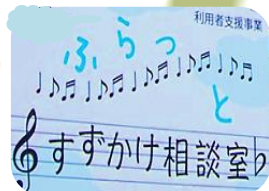 利用者支援事業
ふらっ
と
すずかけ相談室